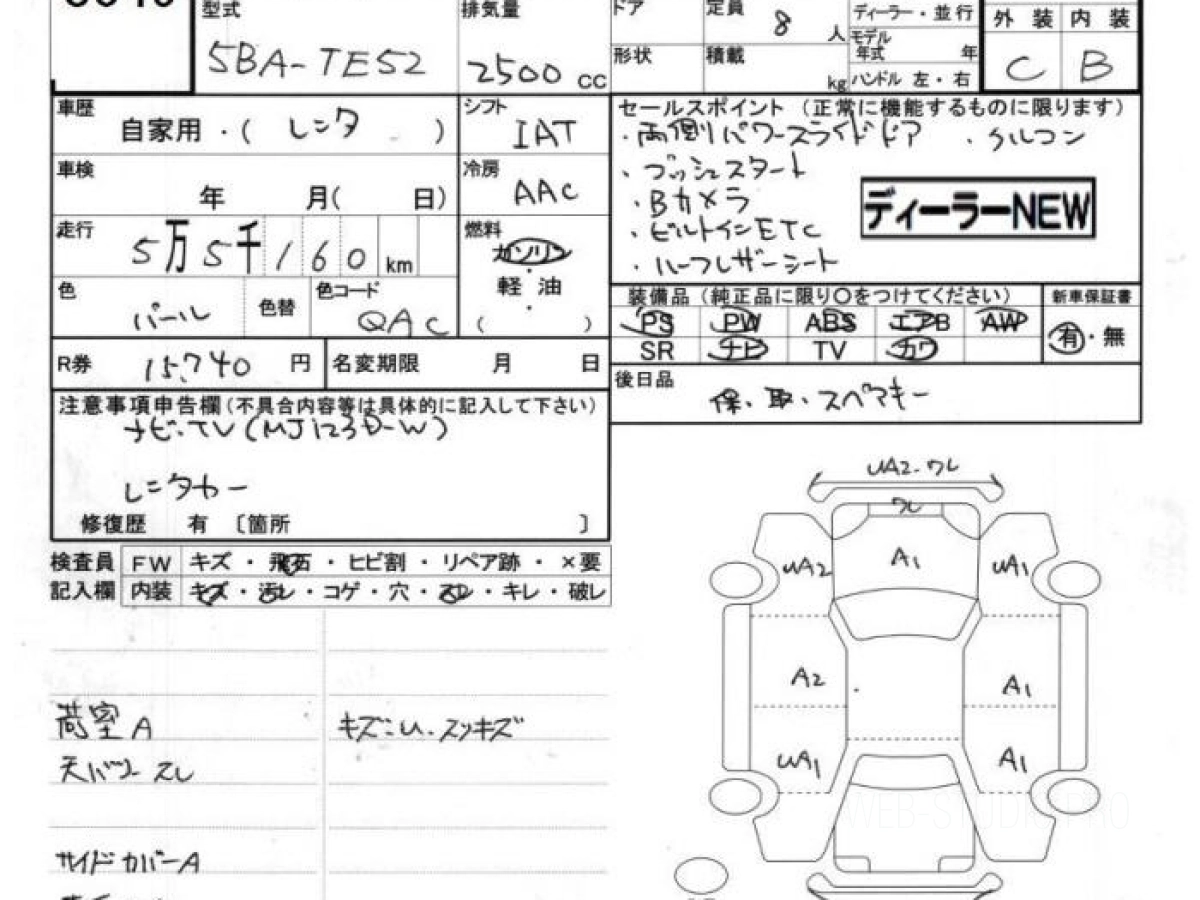 型式 排気量 ドア 定員 8 人 ディーラー・並行 外装 内装
5BA-TE52 2500 cc 形状 積載 kg モデル年式 年 ハンドル 左・右 C B
車歴 自家用・( レンタ ) シフト IAT
車検 年 月( 日) 冷房 AAC
走行 5万5千160 km 燃料 ガソリン
軽・油
( )
色 パール 色替 色コード QAC
R券 15,740 円 名変期限 月 日
セールスポイント (正常に機能するものに限ります)
・両側パワースライドドア ・クルコン
・プッシュスタート
・Bカメラ
・ビルトインETC
・ハーフレザーシート
ディーラーNEW
装備品(純正品に限り○をつけてください) 新車保証書
PS PW ABS エアB AW 有・無
SR ナビ TV カワ
後日品 保・取・スペアキー
注意事項申告欄(不具合内容等は具体的に記入して下さい)
ナビ・TV(MJ123D-W)
レンタカー
修復歴 有 〔箇所 〕
検査員 FW キズ・飛石・ヒビ割・リペア跡・×要
記入欄 内装 キズ・汚レ・コゲ・穴・スレ・キレ・破レ
荷室A キズ:U.スリキズ
天バリ スレ
サイドカバーA
UA2.ワレ
ワレ
UA2 A1 UA1
A2 A1
UA1 A1
WEB-STUDIO.PRO